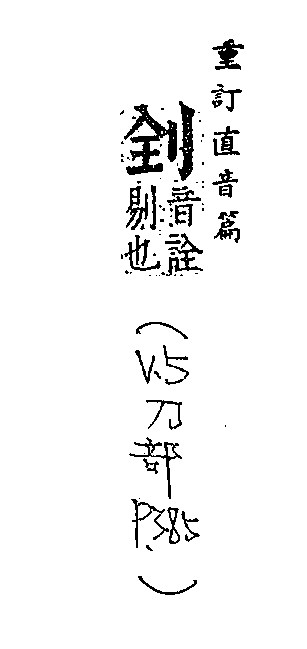 重訂直音篇
𠜍
音詮
剔也
(V.5
刀
部
P.385
)